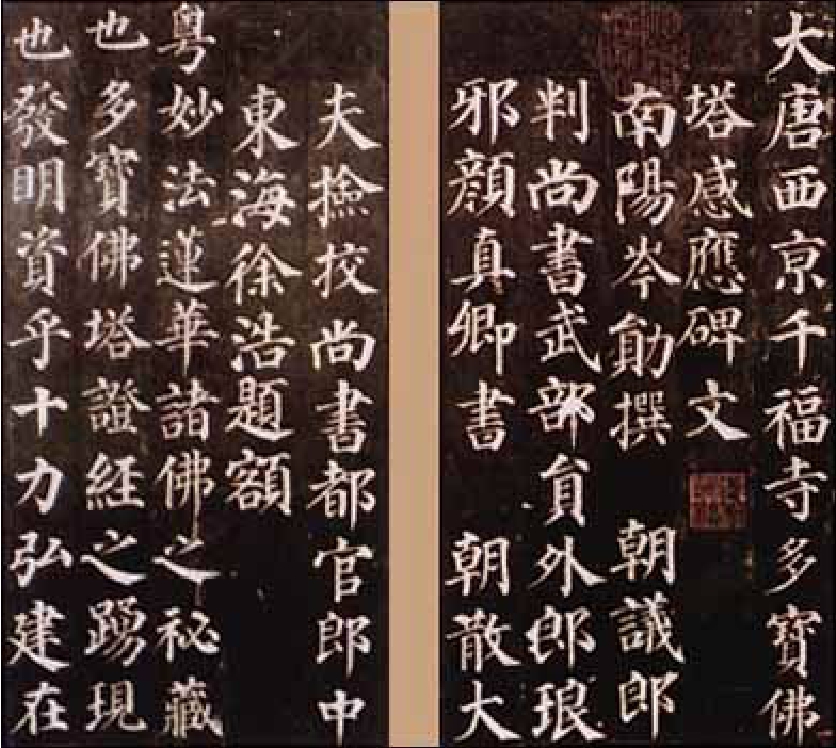 大唐西亰千福寺多寶佛
塔感應碑文
南陽岑勛撰 朝議郎
判尚書武部員外郎琅
邪顏真卿書 朝散大
夫撿挍尚書都官郎中
東海徐浩題額
粤妙法蓮華諸佛之祕藏
也多寶佛塔證経之踴現
也發明資乎十力弘建在